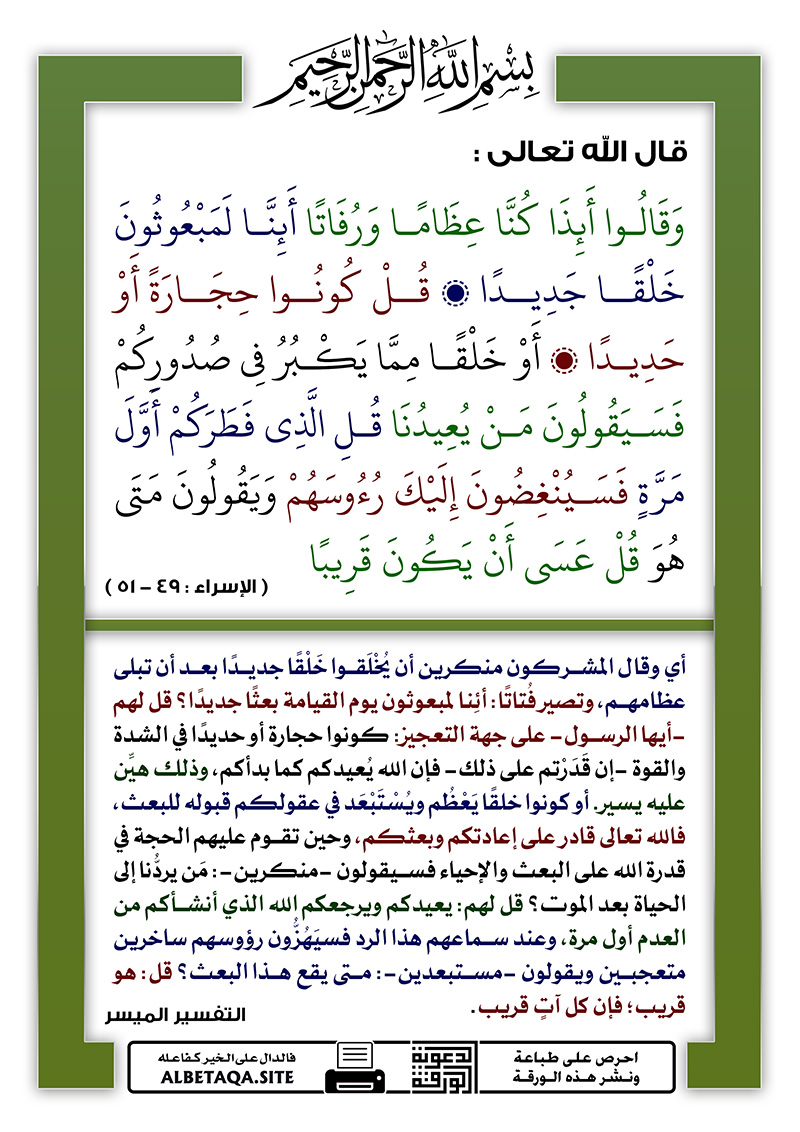 بِسْمِ اللَّهِ الرَّحْمَنِ الرَّحِيمِ
قال الله تعالى :
وَقَالُوا أَئِذَا كُنَّا عِظَامًا وَرُفَاتًا أَئِنَّا لَمَبْعُوثُونَ
خَلْقًا جَدِيدًا ۞ قُلْ كُونُوا حِجَارَةً أَوْ
حَدِيدًا ۞ أَوْ خَلْقًا مِمَّا يَكْبُرُ فِي صُدُورِكُمْ
فَسَيَقُولُونَ مَنْ يُعِيدُنَا قُلِ الَّذِي فَطَرَكُمْ أَوَّلَ
مَرَّةٍ فَسَيُنْغِضُونَ إِلَيْكَ رُءُوسَهُمْ وَيَقُولُونَ مَتَى
هُوَ قُلْ عَسَى أَنْ يَكُونَ قَرِيبًا
( الإسراء : ٤٩ - ٥١ )
أي وقال المشركون منكرين أن يُخْلَقوا خَلْقًا جديدًا بعد أن تبلى
عظامهم، وتصير فُتاتًا: أئِنا لمبعوثون يوم القيامة بعثًا جديدًا؟ قل لهم
-أيها الرسول- على جهة التعجيز: كونوا حجارة أو حديدًا في الشدة
والقوة -إن قَدَرْتم على ذلك- فإن الله يُعيدكم كما بدأكم، وذلك هيِّن
عليه يسير. أو كونوا خلقًا يَعْظُم ويُسْتَبْعَد في عقولكم قبوله للبعث،
فالله تعالى قادر على إعادتكم وبعثكم، وحين تقوم عليهم الحجة في
قدرة الله على البعث والإحياء فسيقولون -منكرين-: مَن يردُّنا إلى
الحياة بعد الموت؟ قل لهم: يعيدكم ويرجعكم الله الذي أنشأكم من
العدم أول مرة، وعند سماعهم هذا الرد فسيَهُزُّون رؤوسهم ساخرين
متعجبين ويقولون -مستبعدين-: متى يقع هذا البعث؟ قل: هو
قريب؛ فإن كل آتٍ قريب.
التفسير الميسر
احرص على طباعة
ونشر هذه الورقة
الورقة الدعوية
فالدال على الخير كفاعله
ALBETAQA.SITE